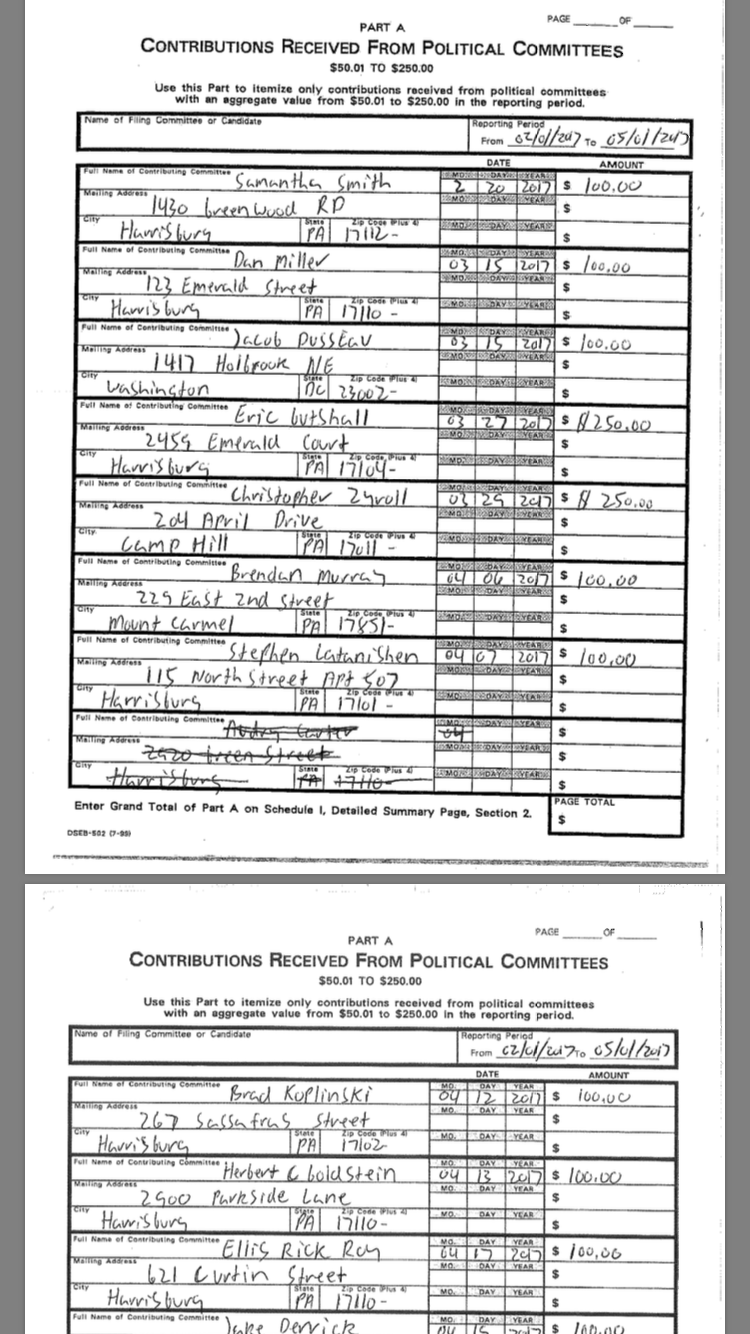 PAGE ______ OF ______
PART A
CONTRIBUTIONS RECEIVED FROM POLITICAL COMMITTEES
$50.01 TO $250.00
Use this Part to itemize only contributions received from political committees
with an aggregate value from $50.01 to $250.00 in the reporting period.
Name of Filing Committee or Candidate
Reporting Period
From 02/01/2017 To 05/01/2017
DATE AMOUNT
Full Name of Contributing Committee Samantha Smith MO. DAY YEAR
2 20 2017 $ 100.00
Mailing Address 1430 Greenwood RD MO. DAY YEAR $
City Harrisburg State PA Zip Code (Plus 4) 17112- MO. DAY YEAR $
Full Name of Contributing Committee Dan Miller MO. DAY YEAR
03 15 2017 $ 100.00
Mailing Address 123 Emerald Street MO. DAY YEAR $
City Harrisburg State PA Zip Code (Plus 4) 17110- MO. DAY YEAR $
Full Name of Contributing Committee Jacob Dusseau MO. DAY YEAR
03 15 2017 $ 100.00
Mailing Address 1417 Holbrook NE MO. DAY YEAR $
City Washington State DC Zip Code (Plus 4) 23002- MO. DAY YEAR $
Full Name of Contributing Committee Eric MO. DAY YEAR
03 27 2017 $ 250.00
Mailing Address 2459 Emerald Court MO. DAY YEAR $
City Harrisburg State PA Zip Code (Plus 4) 17104- MO. DAY YEAR $
Full Name of Contributing Committee Christopher MO. DAY YEAR
03 29 2017 $ 250.00
Mailing Address 204 April Drive MO. DAY YEAR $
City Camp Hill State PA Zip Code (Plus 4) 17011- MO. DAY YEAR $
Full Name of Contributing Committee Brendan Murray MO. DAY YEAR
04 06 2017 $ 100.00
Mailing Address 229 East 2nd Street MO. DAY YEAR $
City Mount Carmel State PA Zip Code (Plus 4) 17851- MO. DAY YEAR $
Full Name of Contributing Committee Stephen MO. DAY YEAR
04 07 2017 $ 100.00
Mailing Address 115 North Street Apt 507 MO. DAY YEAR $
City Harrisburg State PA Zip Code (Plus 4) 17101- MO. DAY YEAR $
Full Name of Contributing Committee Carter MO. DAY YEAR
04 $
Mailing Address Green Street MO. DAY YEAR $
City Harrisburg State PA Zip Code (Plus 4) 17110- MO. DAY YEAR $
Enter Grand Total of Part A on Schedule I, Detailed Summary Page, Section 2. PAGE TOTAL
$
DSEB-502 (7-99)
PAGE ______ OF ______
PART A
CONTRIBUTIONS RECEIVED FROM POLITICAL COMMITTEES
$50.01 TO $250.00
Use this Part to itemize only contributions received from political committees
with an aggregate value from $50.01 to $250.00 in the reporting period.
Name of Filing Committee or Candidate
Reporting Period
From 02/01/2017 To 05/01/2017
DATE AMOUNT
Full Name of Contributing Committee Brad Koplinski MO. DAY YEAR
04 12 2017 $ 100.00
Mailing Address 267 Sassafras Street MO. DAY YEAR $
City Harrisburg State PA Zip Code (Plus 4) 17102 MO. DAY YEAR $
Full Name of Contributing Committee Herbert C Goldstein MO. DAY YEAR
04 13 2017 $ 100.00
Mailing Address 2900 Parkside Lane MO. DAY YEAR $
City Harrisburg State PA Zip Code (Plus 4) 17110- MO. DAY YEAR $
Full Name of Contributing Committee Ellis Rick Roy MO. DAY YEAR
04 17 2017 $ 100.00
Mailing Address 621 Curtin Street MO. DAY YEAR $
City Harrisburg State PA Zip Code (Plus 4) 17110- MO. DAY YEAR $
Full Name of Contributing Committee Derrick MO. DAY YEAR